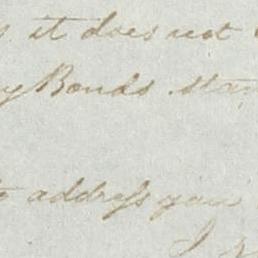 it does not
Bonds
address you
I